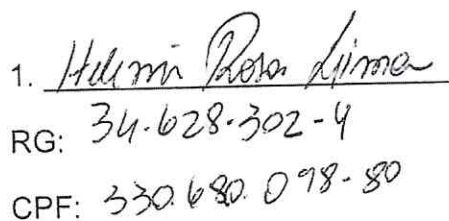 1. Helimir Rosa Lima
RG: 34.628.302-4
CPF: 330.680.098-80